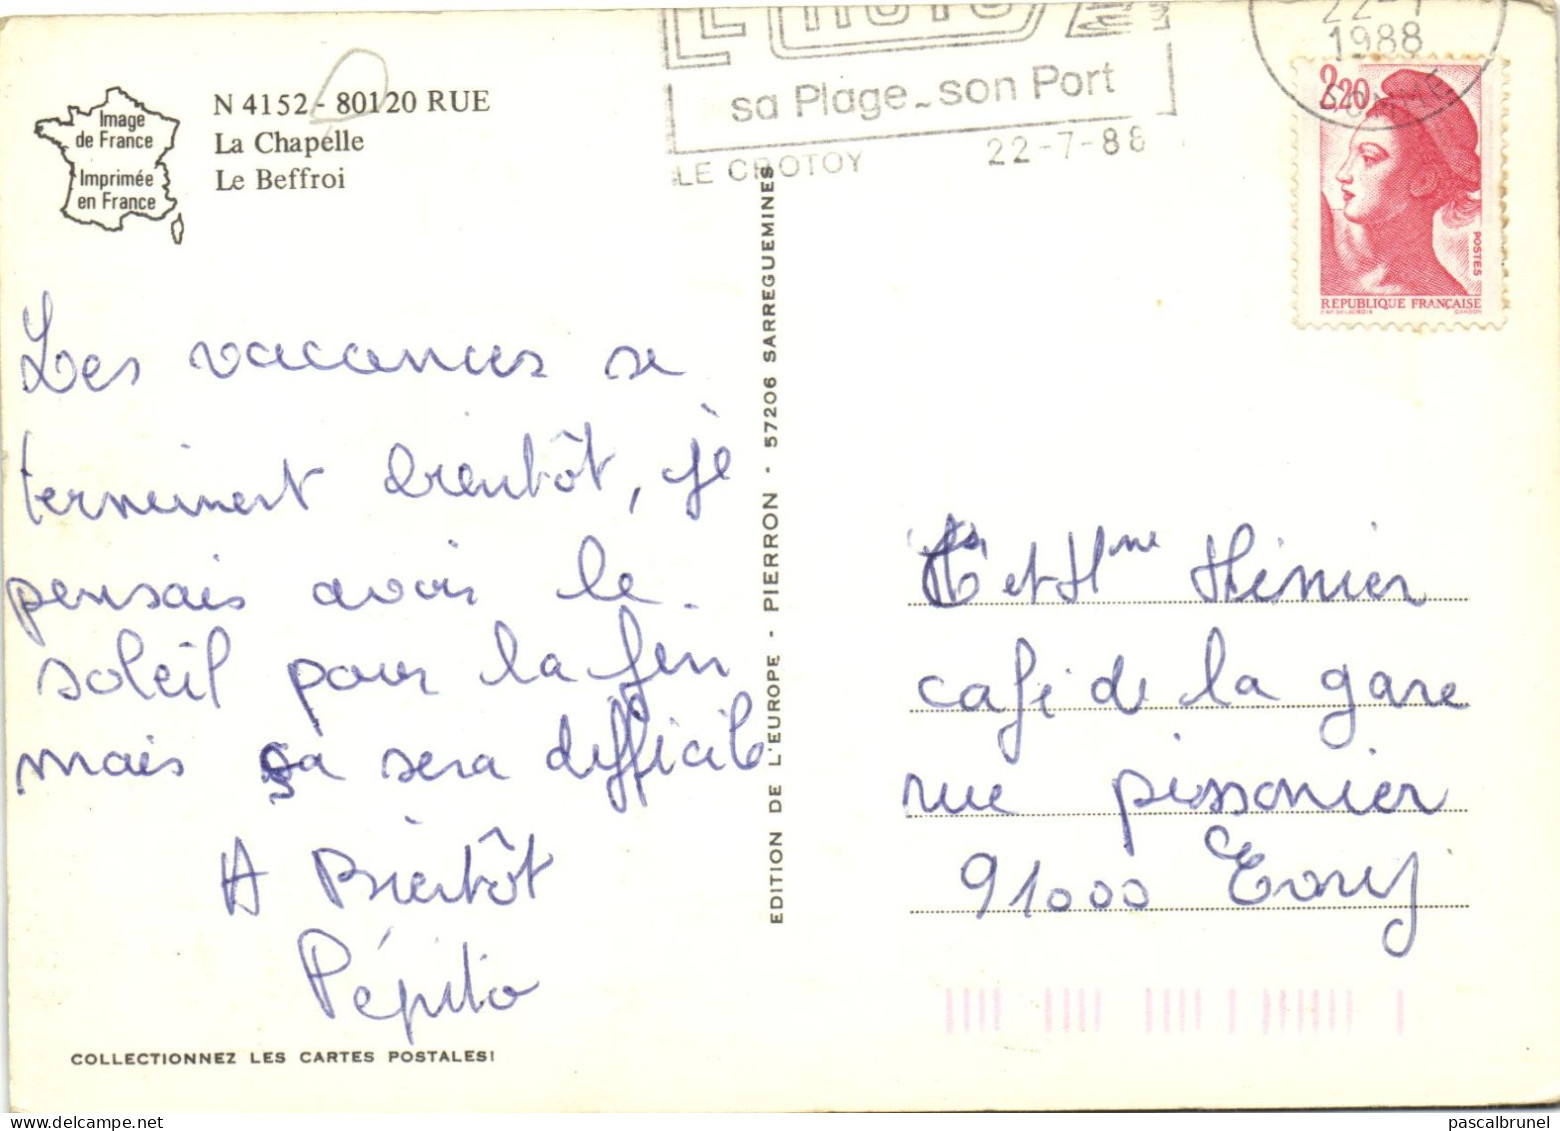 Image
de France
Imprimée
en France
N 4152 - 80120 RUE
La Chapelle
Le Beffroi
sa Plage - son Port
LE CROTOY 22-7-88
22-7
1988
SOMME
2,20
POSTES
REPUBLIQUE FRANÇAISE
D'AP. DELACROIX GANDON
Les vacances se
terminent bientôt, je
pensais avoir le
soleil pour la fin
mais ça sera difficile
A Bientôt
Pépito
COLLECTIONNEZ LES CARTES POSTALES!
EDITION DE L'EUROPE - PIERRON - 57206 SARREGUEMINES
et Mme Hénier
café de la gare
rue pissonier
91000 Evry
pascalbrunel